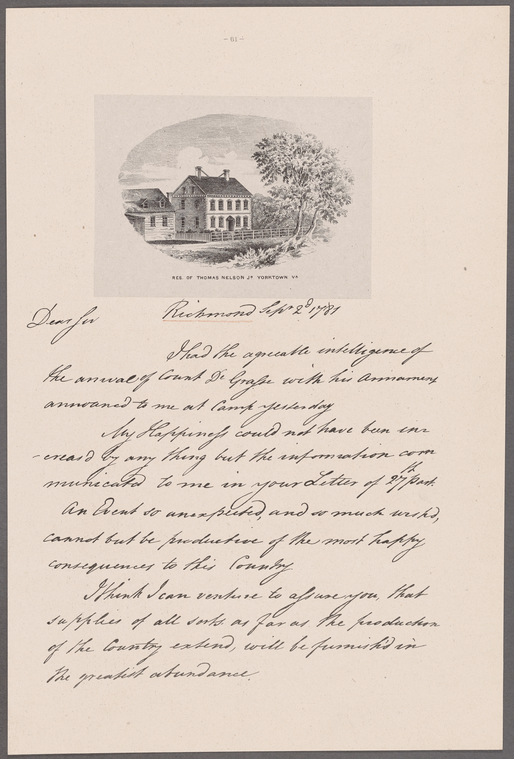 - 61 -
RES. OF THOMAS NELSON Jr YORKTOWN Va
Richmond Sepr 2d 1781
Dear Sir
I had the agreeable intelligence of
the arrival of Count De Grasse with his Armament
announced to me at Camp yesterday
My Happiness could not have been in-
-creas'd by any thing but the information com
municated to me in your Letter of 27th past.
An Event so unexpected, and so much wish'd,
cannot but be productive of the most happy
consequences to this Country
I think I can venture to assure you, that
supplies of all sorts as far as the production
of the Country extend, will be furnish'd in
the greatest abundance.